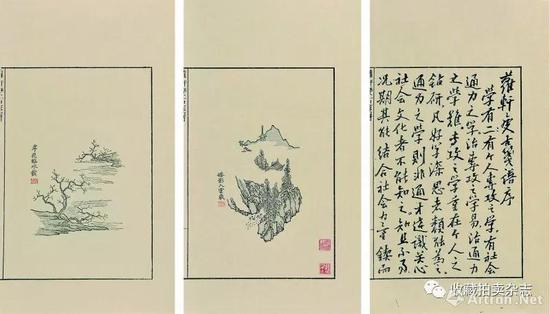 臨水
影入雲
蘿軒變古箋譜序
學有二有个人專攻之學有社會
通力之學治專攻之學易治通力
之學難專攻之學重在个人之
鑽研凡好學深思者類能為之
通力之學則非通才達識關心
社會文化者不能知之知且不易
況期其能結合社會力量鍥而
收藏拍卖杂志
Artron.Net